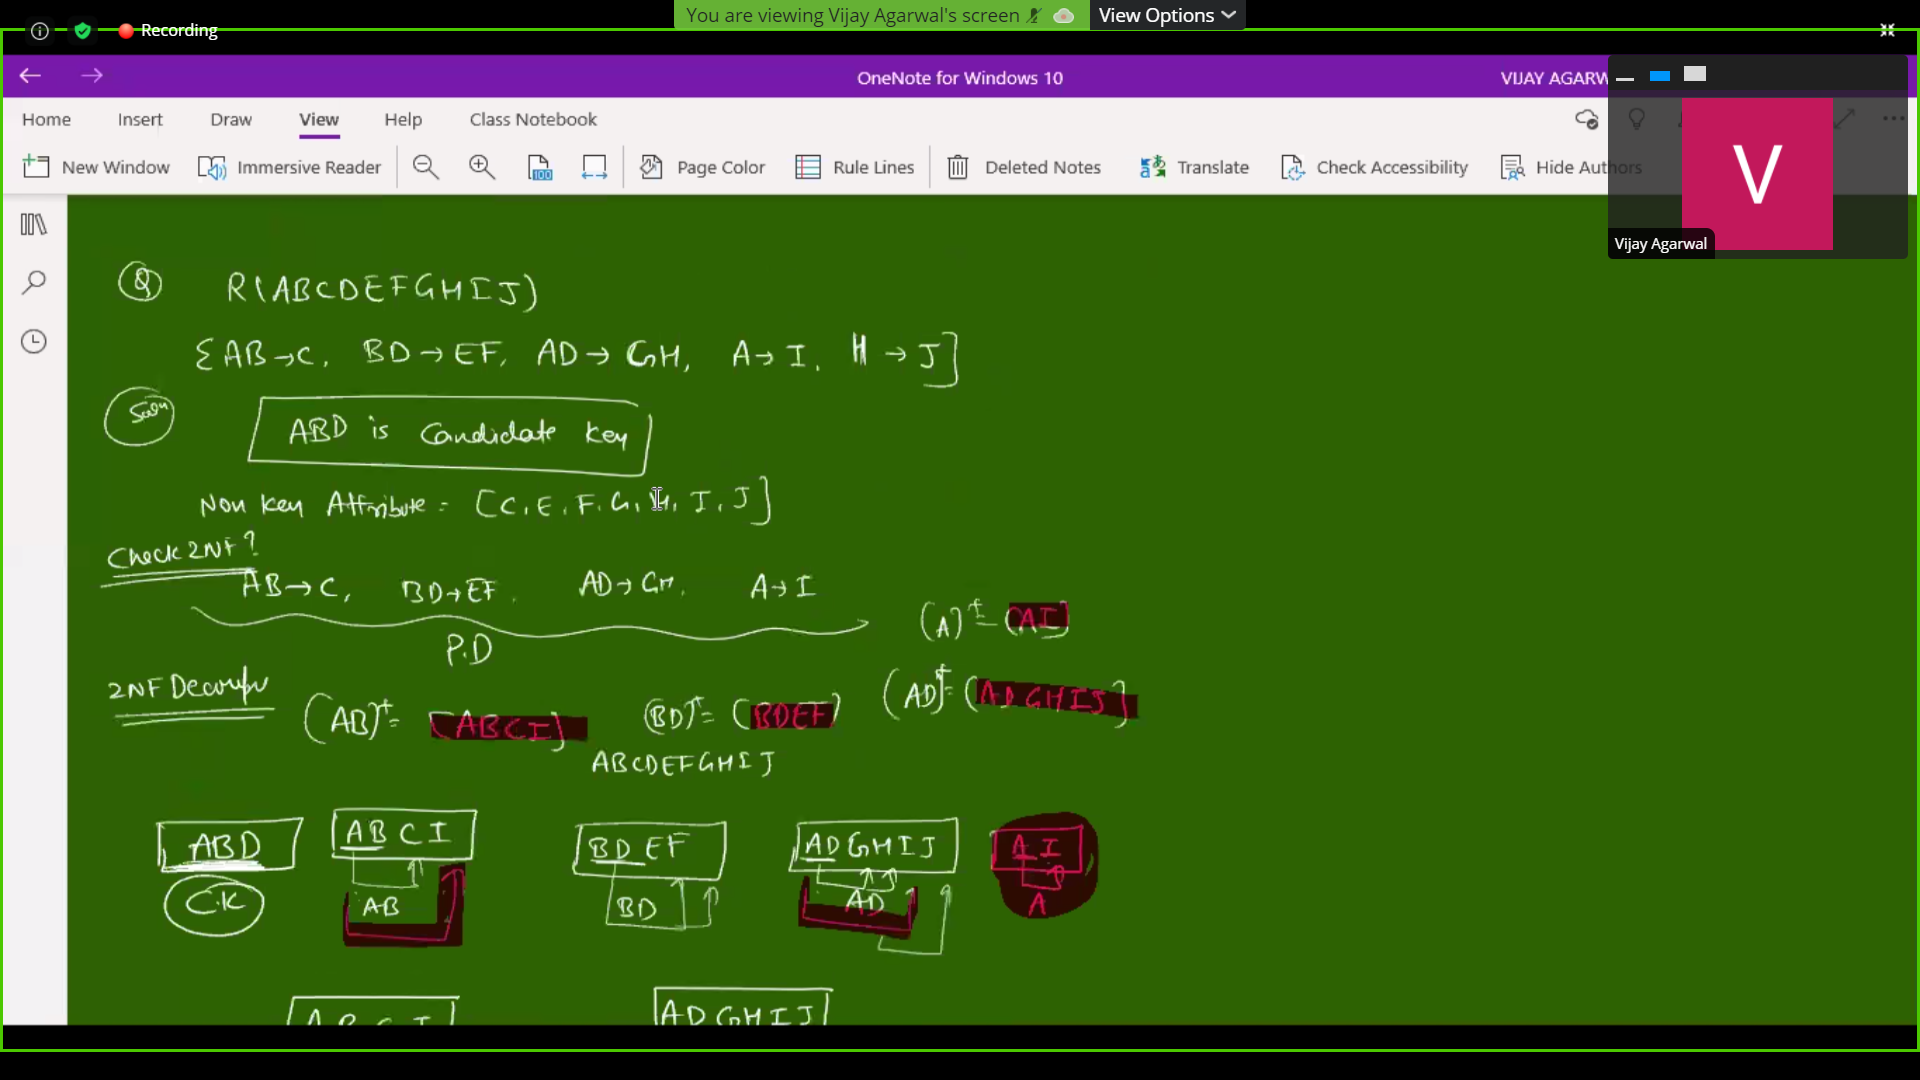 You are viewing Vijay Agarwal's screen View Options
Recording
OneNote for Windows 10 VIJAY AGARW
Home Insert Draw View Help Class Notebook
New Window Immersive Reader Page Color Rule Lines Deleted Notes Translate Check Accessibility Hide Authors
V
Vijay Agarwal
Q R(ABCDEFGHIJ)
{AB→C, BD→EF, AD→GH, A→I, H→J]
Soln ABD is Candidate Key
Non Key Attribute = [C, E, F, G, H, I, J]
Check 2NF?
AB→C, BD→EF, AD→GH, A→I
P.D
(A)+ = (AI)
2NF Decomp
(AB)+ = [ABCI] (BD)+ = (BDEF) (AD)+ = (ADGHIJ]
ABCDEFGHIJ
ABD ABCI BDEF ADGHIJ AI
C.K AB BD AD A
ABCI ADGHIJ